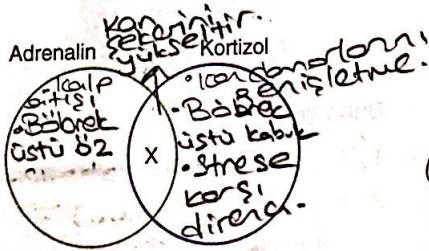 kan
şekerini
yükseltir.
Adrenalin
Kortizol
kalp
atışı
•Böbrek
üstü öz
X
•kan damarlarını
genişletme.
•Böbrek
üstü kabuk
•Strese
karşı
direnç.